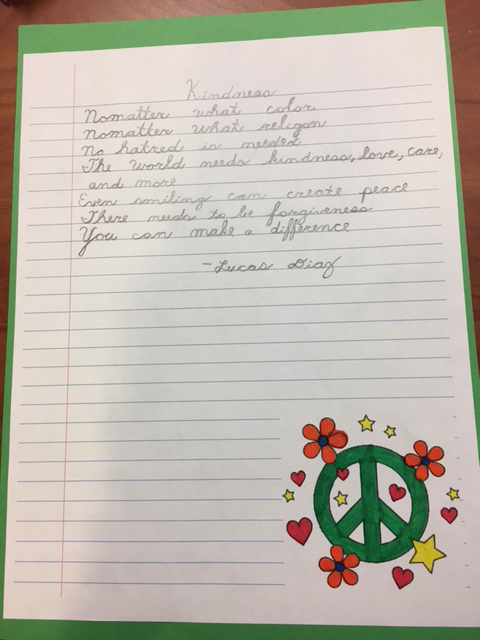 Kindness
Nomatter what color
Nomatter what religon
No hatred is needed
The world needs kindness, love, care,
and more
Even smiling can create peace
There needs to be forgiveness
You can make a difference
-Lucas Diaz